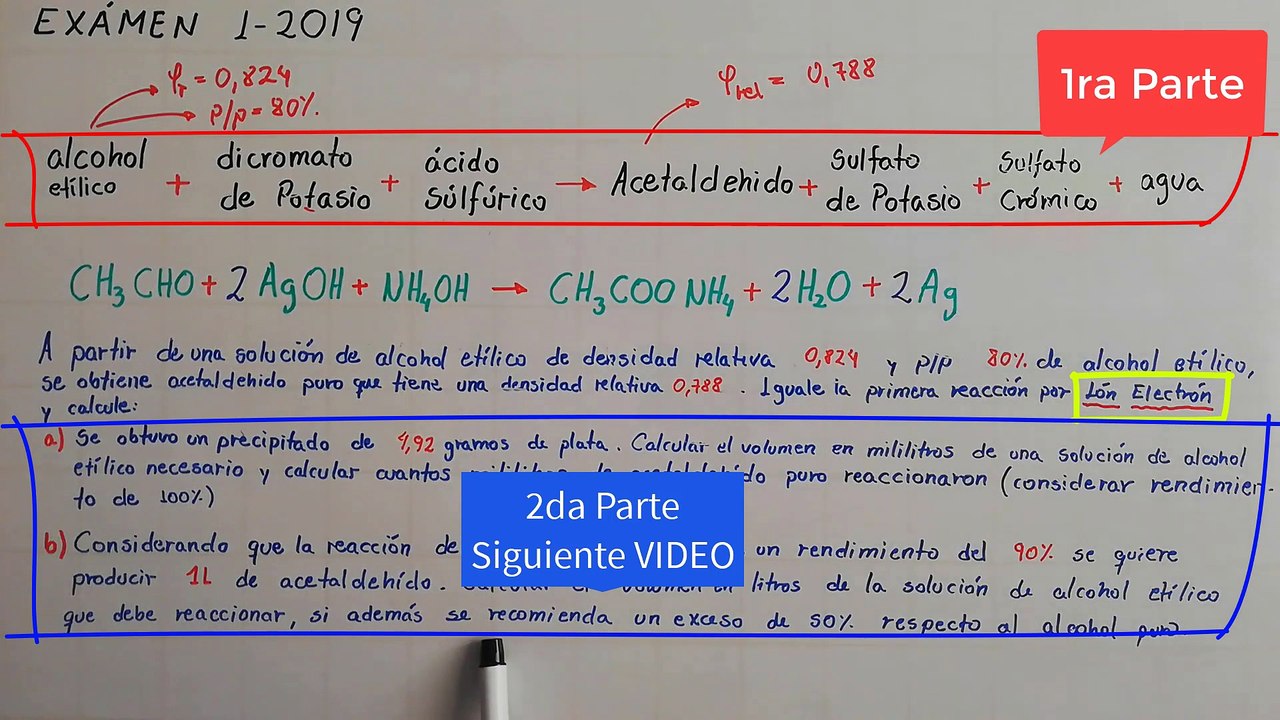 EXÁMEN 1-2019
1ra Parte
φr = 0,824
p/p = 80%.
φrel = 0,788
alcohol etílico + dicromato de Potasio + ácido Súlfúrico → Acetaldehido + Sulfato de Potasio + Sulfato Crómico + agua
CH₃CHO + 2 AgOH + NH₄OH → CH₃COONH₄ + 2H₂O + 2Ag
A partir de una solución de alcohol etílico de densidad relativa 0,824 y p/p 80% de alcohol etílico,
se obtiene acetaldehido puro que tiene una densidad relativa 0,788. Iguale la primera reacción por Ión Electrón
y calcule:
a) Se obtuvo un precipitado de 4,92 gramos de plata. Calcular el volumen en mililitros de una solución de alcohol
etílico necesario y calcular cuantos puro reaccionaron (considerar rendimien-
to de 100%)
2da Parte
Siguiente VIDEO
b) Considerando que la reacción de un rendimiento del 90% se quiere
producir 1L de acetaldehído. litros de la solución de alcohol etílico
que debe reaccionar, si además se recomienda un exceso de 50% respecto al alcohol puro.